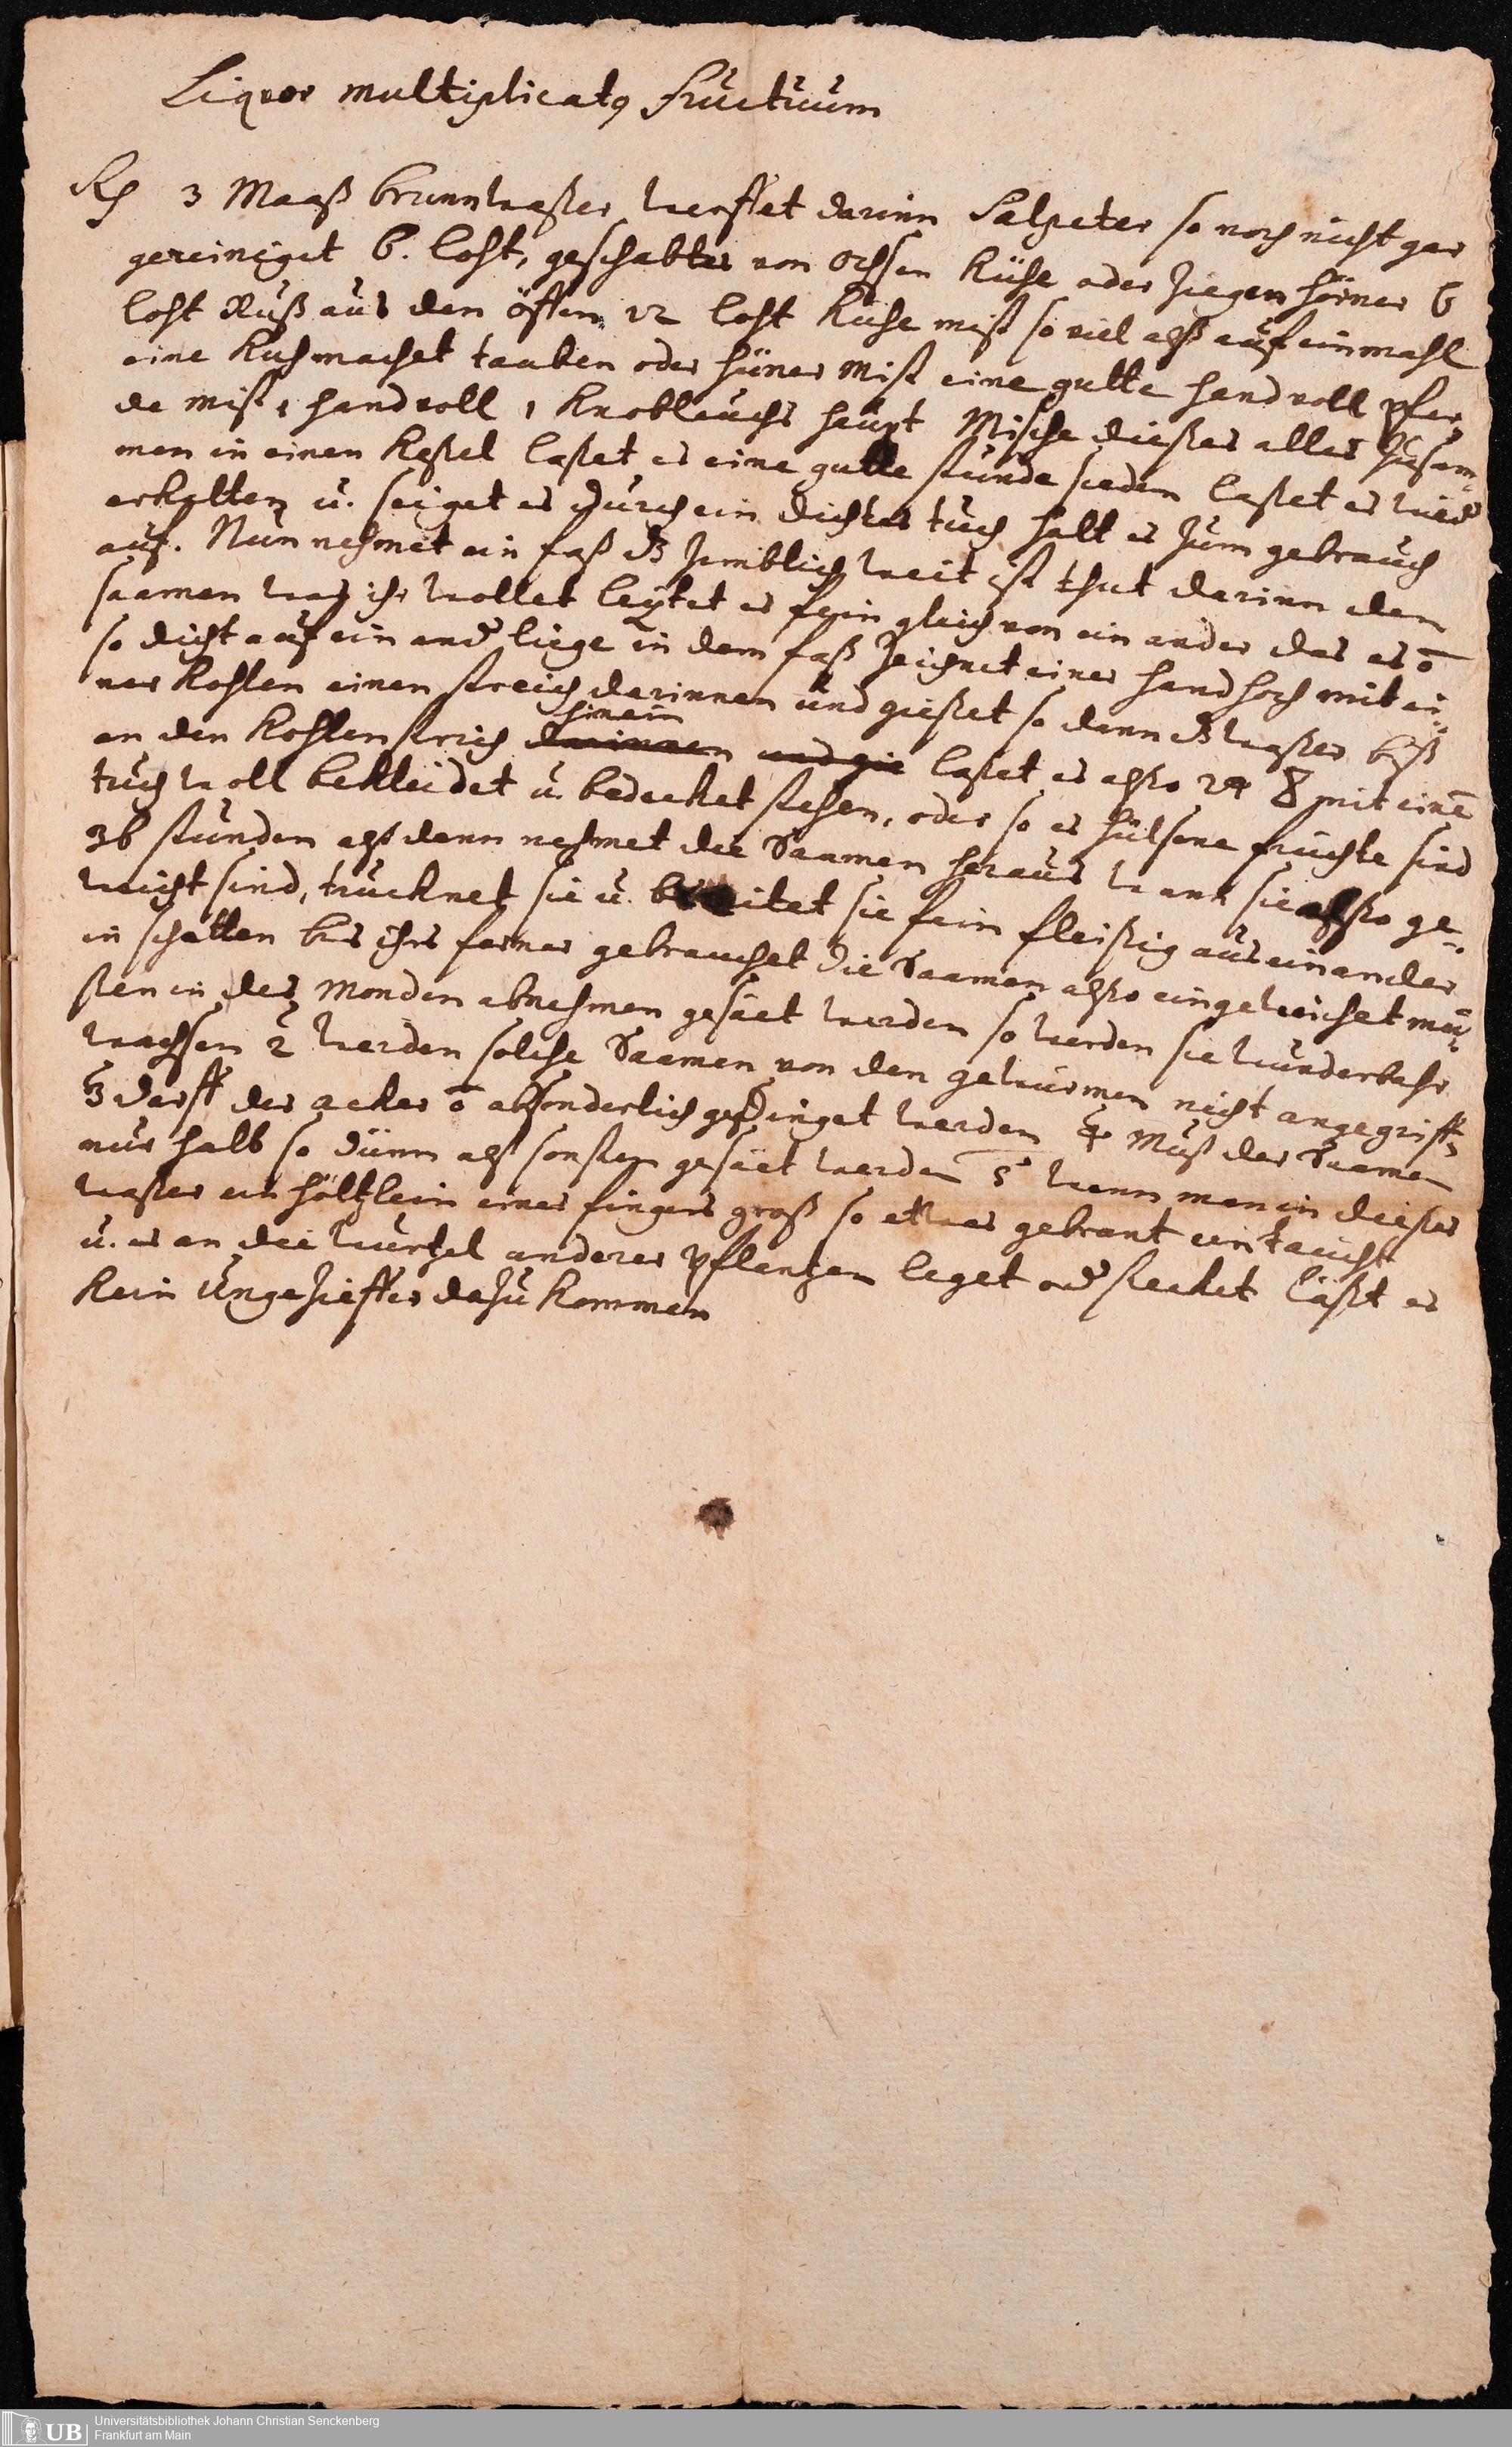 Liquor multiplicatꝰ fructuum
Rp 3 Maaß brunnwaßer werffet darinn Salpeter so noch nicht gar
gereiniget 6. loht, geschabtes von Ochsen Kühe oder Ziegen hörner 6
loht Ruß aus den öffen 12 loht Kuhe mist so viel alß auf einmahl
eine Kuh machet tauben oder hüner Mist eine gutte hand voll pfer¬
de mist 1 hand voll 1 Knoblauchs haupt Mische dießes alles zusam¬
men in einen Keßel laßet es eine gutte stunde sieden laßet es wied
erkalten u. seiget es durch ein dichtes tuch halt es zum gebrauch
auf. Nun nehmet ein faß dz zimblich weit ist thut darinn den
saamen was ihr wollet leget es fein gleich von ein ander das es ō
so dicht auf ein and liege in dem faß zeichnet einer hand hoch mit ei¬
ner Kohlen einen streich darinnen und gießet so dann dz waßer biß
hinein
an den Kohlen strich darinnen und gie laßet es alßo 24 mit einē
tuch woll bekleidet u. bedecket stehen, oder so es hülsene früchte sind
36 stunden alß dann nehmet die Saamen heraus wann sie alßo ge¬
weicht sind, trucknet sie u. breitet sie fein fleißig aus einander
in schatten bis ihrs ferner gebrauchet Die Saamen alßo eingeweichet müs¬
sten in des Monden abnehmen gesäet werden so werden sie wunderbahr
wachsen 2 werden solche Saamen von den gewürmen nicht angegriff
3 darff der acker ō absonderlich gedünget werden 4 Muß der Saamen
nur halb so dünn alß sonsten gesäet werden 5 wenn man in dießes
waßer ein höltzlein eines fingers groß so etwas gebrant ein taucht
u. es an die wurtzel anderer pflantzen leget od stecket läßt es
kein ungezieffer dazu kommen
UB
Universitätsbibliothek Johann Christian Senckenberg
Frankfurt am Main